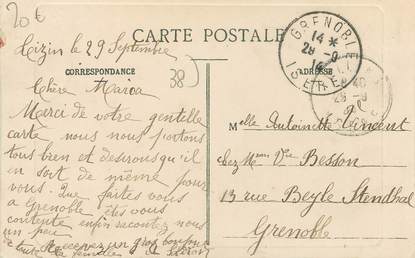 20€
CARTE POSTALE
GRENOBLE
14 *
28 -9
ISERE
CORRESPONDANCE
ADRESSE
38
Tizin le 29 Septembre
Chère
Merci de votre gentille
carte nous nous portons
tous bien et desirons qu'il
en soit de même pour
vous. Que faites vous
a Grenoble êtes vous
contente enfin racontez nous
un peu
Recevez un gros bonjour
de toute la famille
Melle Antoinette Vincent
chez Mme Vve Besson
13 rue Beyle Stendhal
Grenoble